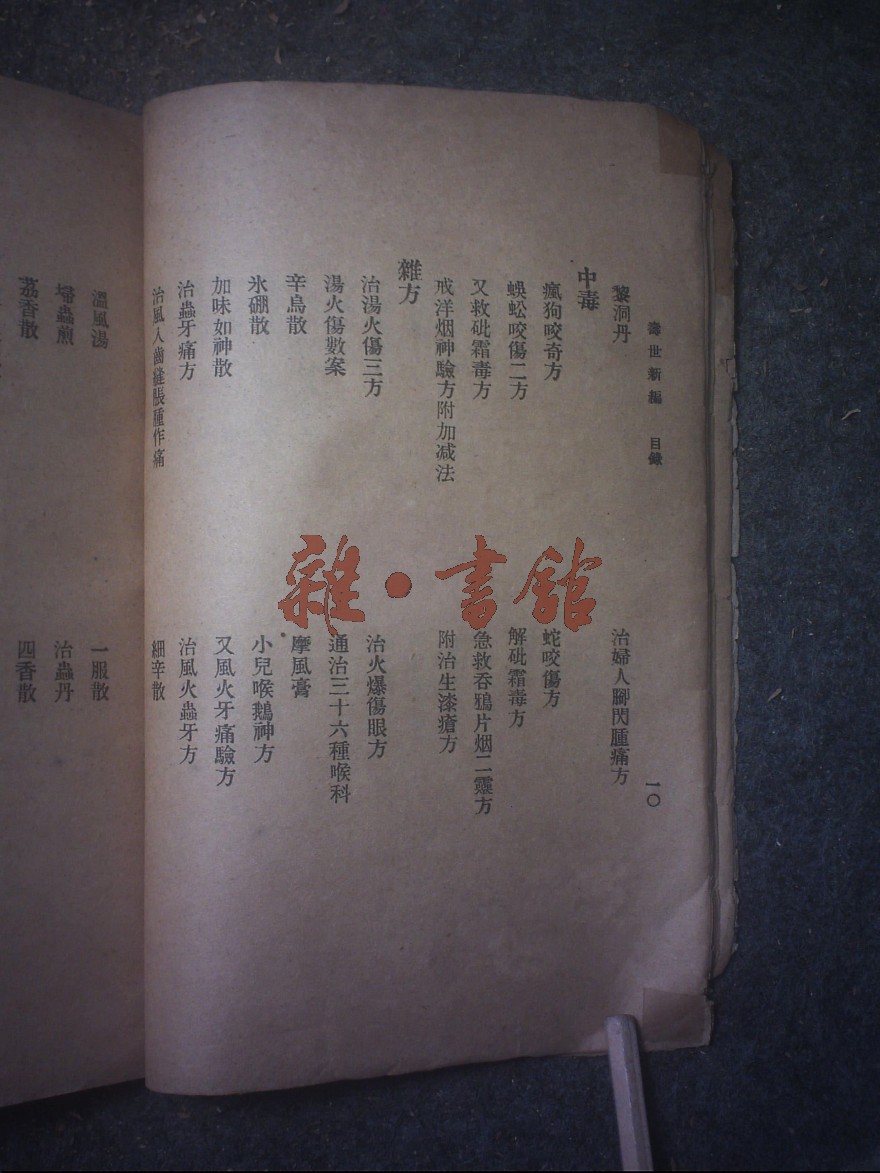 壽世新編　目錄　一〇
黎洞丹　治婦人腳閃腫痛方
中毒
瘋狗咬奇方　蛇咬傷方
蜈蚣咬傷二方　解砒霜毒方
又救砒霜毒方　急救吞鴉片烟二靈方
戒洋烟神驗方附加減法　附治生漆瘡方
雜方
治湯火傷三方　治火爆傷眼方
湯火傷數案　通治三十六種喉科
辛烏散　摩風膏
氷硼散　小兒喉鵝神方
加味如神散　又風火牙痛驗方
治蟲牙痛方　治風火蟲牙方
治風入齒縫脹腫作痛　細辛散
溫風湯　一服散
掃蟲煎　治蟲丹
荔香散　四香散
雜·書館